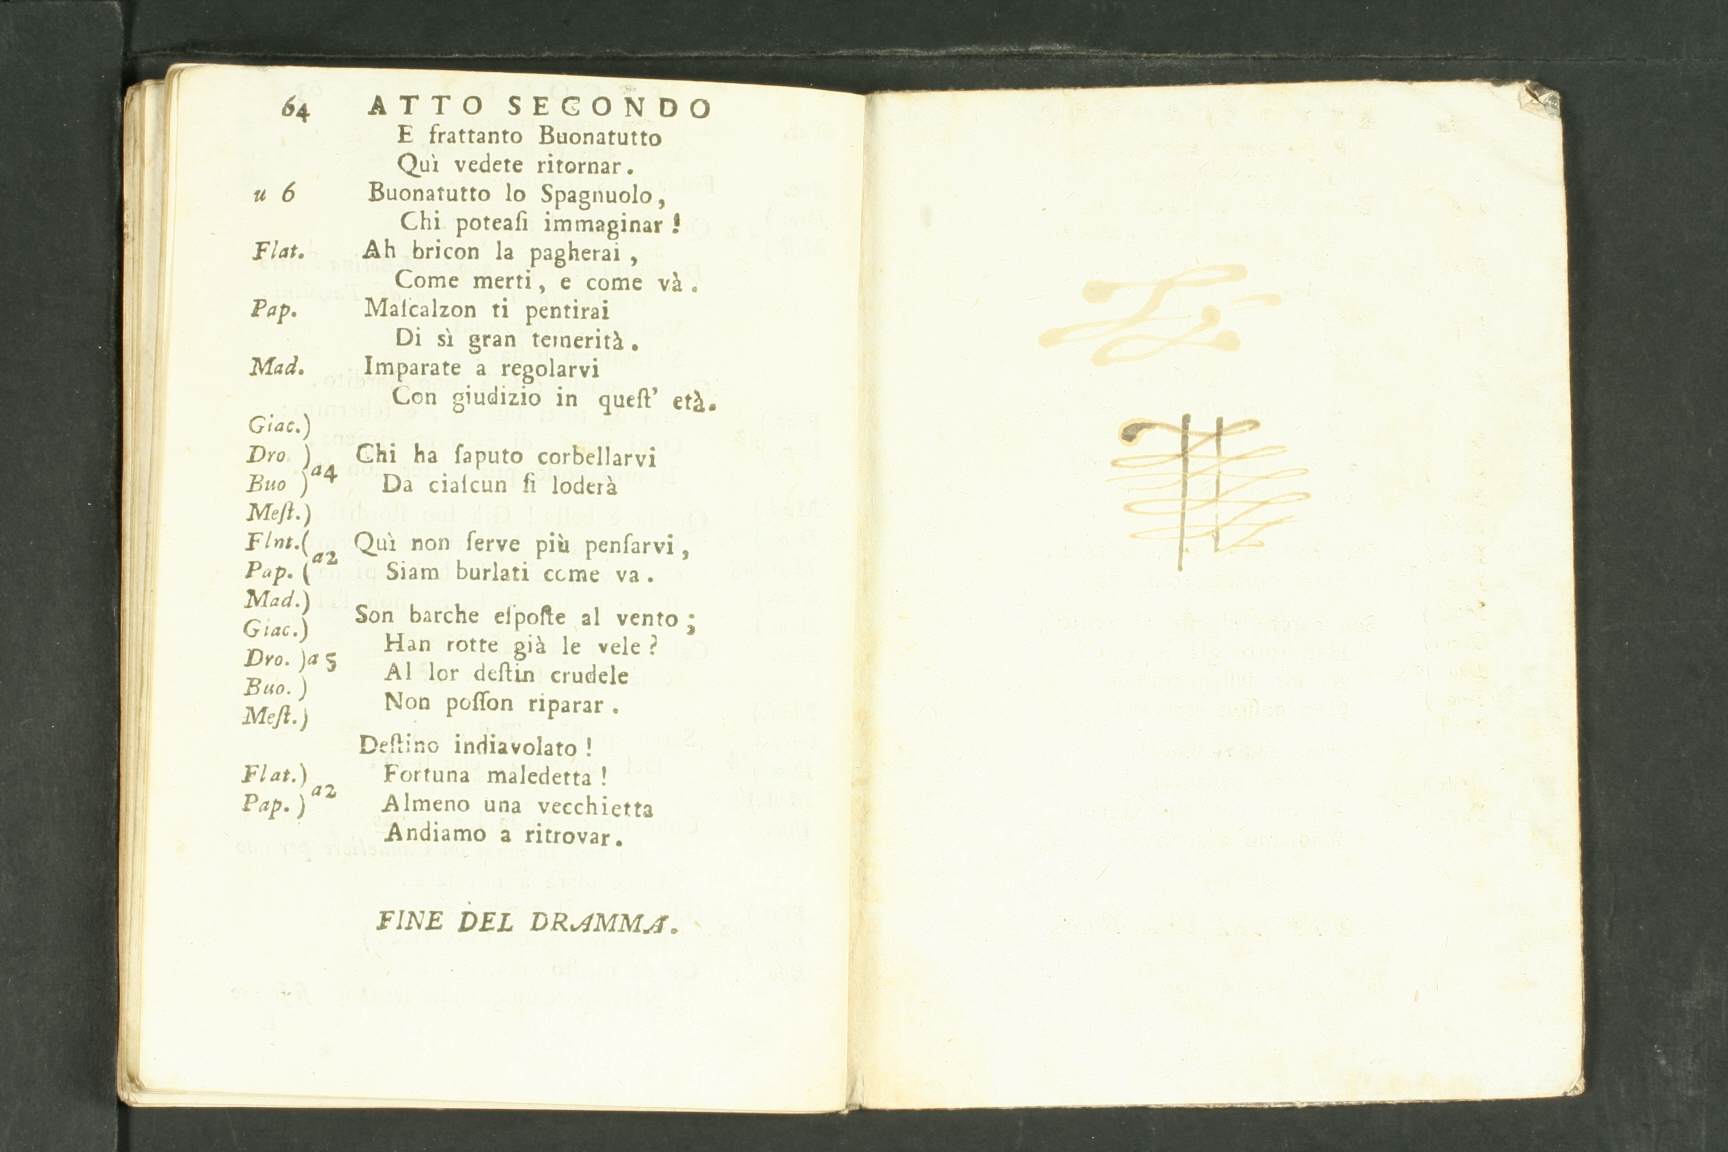 64 ATTO SECONDO
E frattanto Buonatutto
Quì vedete ritornar.
u 6 Buonatutto lo Spagnuolo,
Chi poteaſi immaginar!
Flat. Ah bricon la pagherai,
Come merti, e come và.
Pap. Maſcalzon ti pentirai
Di sì gran temerità.
Mad. Imparate a regolarvi
Con giudizio in queſt' età.
Giac.)
Dro ) Chi ha ſaputo corbellarvi
a4
Buo ) Da ciaſcun ſi loderà
Meſt.)
Flnt.( Quì non ſerve più penſarvi,
a2
Pap. ( Siam burlati come va.
Mad.)
Son barche eſpoſte al vento;
Giac.)
Han rotte già le vele?
Dro. )a 5
Al lor deſtin crudele
Buo. )
Non poſſon riparar.
Meſt.)
Deſtino indiavolato!
Flat.) Fortuna maledetta!
a2
Pap. ) Almeno una vecchietta
Andiamo a ritrovar.
FINE DEL DRAMMA.